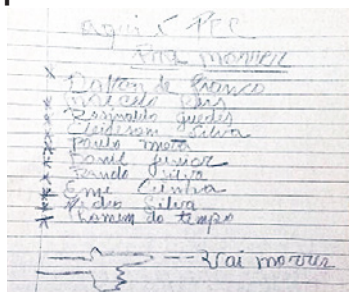 aqui é PCC
Pra morrer
Dalton de Franco
Marcelo Reis
Reginaldo Guedes
Cleiderson Silva
Paulo mota
Junior
Silva
Emi Cunha
Pedro Silva
homem do tempo
Vai morrer